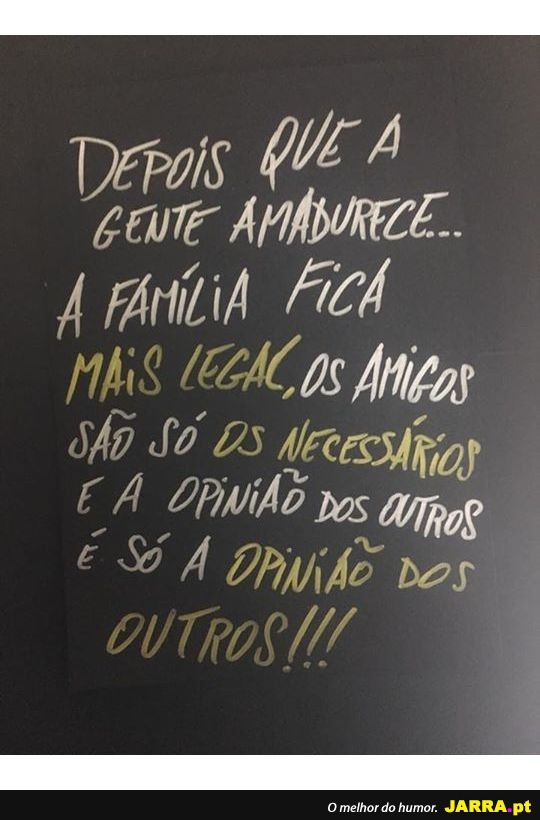 DEPOIS QUE A
GENTE AMADURECE...
A FAMÍLIA FICA
MAIS LEGAL, OS AMIGOS
SÃO SÓ OS NECESSÁRIOS
E A OPINIÃO DOS OUTROS
É SÓ A OPINIÃO DOS
OUTROS!!!
O melhor do humor. JARRA.pt